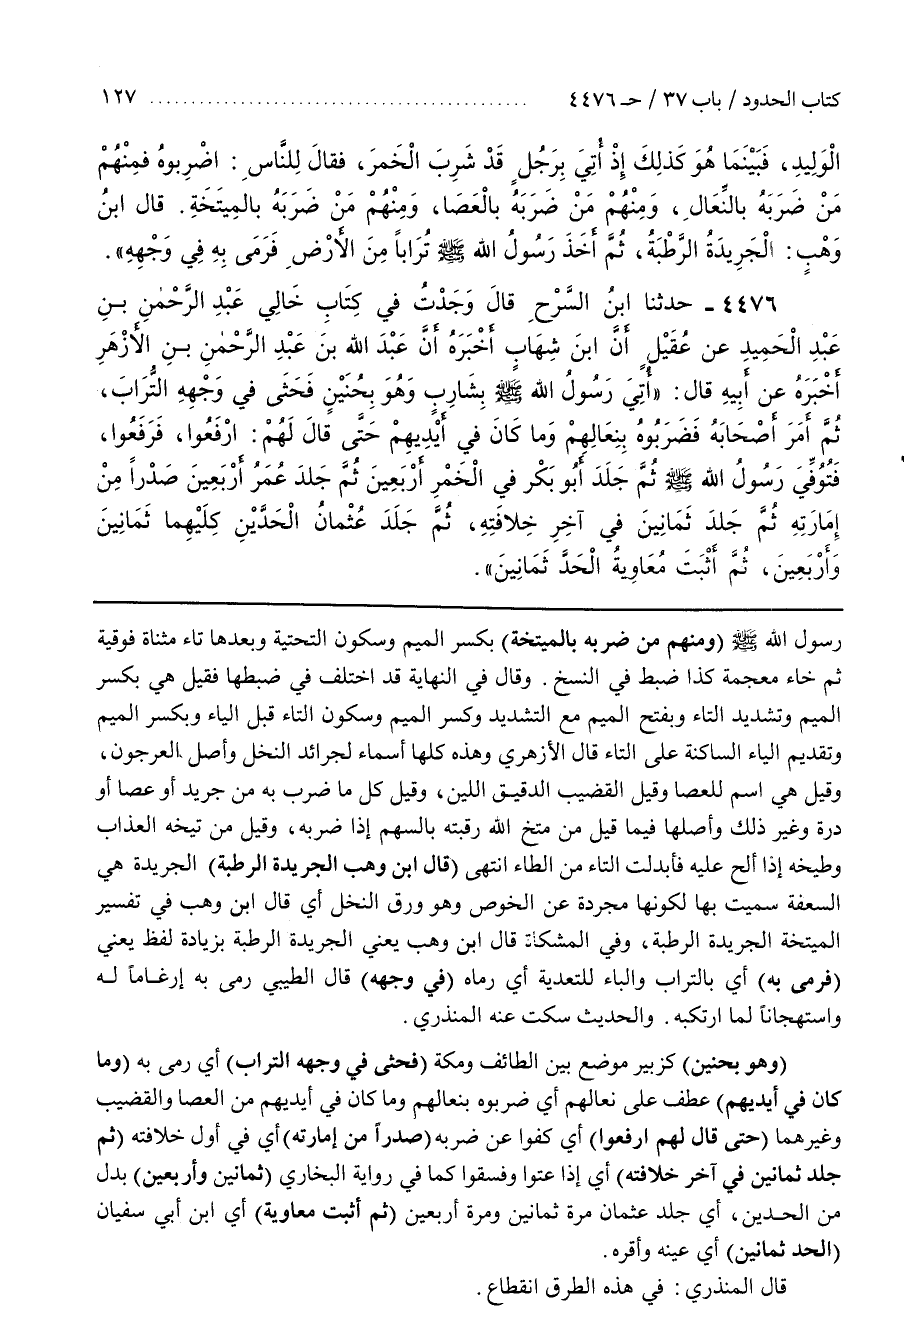 كتاب الحدود / باب ٣٧ / حـ ٤٤٧٦ ............................................. ١٢٧
الْوَلِيدِ، فَبَيْنَمَا هُوَ كَذلِكَ إِذْ أُتِيَ بِرَجُلٍ قَدْ شَرِبَ الْخمرَ، فقالَ لِلنَّاسِ: اضْرِبوهُ فمِنْهُمْ
مَنْ ضَرَبَهُ بالنِّعَالِ، وَمِنْهُمْ مَنْ ضَرَبَهُ بالْعَصَا، وَمِنْهُمْ مَنْ ضَرَبَهُ بالمِيتَخَةِ. قال ابنُ
وَهْبٍ: الْجَرِيدَةُ الرَّطْبَةُ، ثُمَّ أَخَذَ رَسُولُ الله ﷺ تُرَاباً مِنَ الأَرْضِ فَرَمَى بِهِ فِي وَجْهِهِ».
٤٤٧٦ ـ حدثنا ابنُ السَّرْحِ قالَ وَجَدْتُ في كِتَابِ خَالِي عَبْدِ الرَّحْمٰنِ بـنِ
عَبْدِ الْحَمِيدِ عن عُقَيْلٍ أَنَّ ابنَ شِهَابٍ أَخْبَرَهُ أَنَّ عَبْدَ الله بنَ عَبْدِ الرَّحْمٰنِ بـنِ الأَزْهَرِ
أَخْبَرَهُ عن أَبِيهِ قال: «أُتِيَ رَسُولُ الله ﷺ بِشَارِبٍ وَهُوَ بِحُنَيْنٍ فَحَثَى في وَجْهِهِ التُّرَابَ،
ثُمَّ أَمَرَ أَصْحَابَهُ فَضَرَبُوهُ بِنِعَالِهِمْ وَما كَانَ في أَيْدِيهِمْ حَتَّى قالَ لَهُمْ: ارْفَعُوا، فَرَفَعُوا،
فَتُوُفِّيَ رَسُولُ الله ﷺ ثُمَّ جَلَدَ أَبُو بَكْرٍ في الْخَمْرِ أَرْبَعِينَ ثُمَّ جَلدَ عُمَرُ أَرْبَعِينَ صَدْراً مِنْ
إِمَارَتِهِ ثُمَّ جَلدَ ثَمَانِينَ في آخِرِ خِلافَتِهِ، ثُمَّ جَلَدَ عُثْمانُ الْحَدَّيْنِ كِلَيْهِما ثَمَانِينَ
وَأَرْبَعِينَ، ثُمَّ أَثْبَتَ مُعَاوِيةُ الْحَدَّ ثَمَانِينَ».
رسول الله ﷺ (ومنهم من ضربه بالميتخة) بكسر الميم وسكون التحتية وبعدها تاء مثناة فوقية
ثم خاء معجمة كذا ضبط في النسخ. وقال في النهاية قد اختلف في ضبطها فقيل هي بكسر
الميم وتشديد التاء وبفتح الميم مع التشديد وكسر الميم وسكون التاء قبل الياء وبكسر الميم
وتقديم الياء الساكنة على التاء قال الأزهري وهذه كلها أسماء لجرائد النخل وأصل العرجون،
وقيل هي اسم للعصا وقيل القضيب الدقيق اللين، وقيل كل ما ضرب به من جريد أو عصا أو
درة وغير ذلك وأصلها فيما قيل من متخ الله رقبته بالسهم إذا ضربه، وقيل من تيخه العذاب
وطيخه إذا ألح عليه فأبدلت التاء من الطاء انتهى (قال ابن وهب الجريدة الرطبة) الجريدة هي
السعفة سميت بها لكونها مجردة عن الخوص وهو ورق النخل أي قال ابن وهب في تفسير
الميتخة الجريدة الرطبة، وفي المشكاة قال ابن وهب يعني الجريدة الرطبة بزيادة لفظ يعني
(فرمى به) أي بالتراب والباء للتعدية أي رماه (في وجهه) قال الطيبي رمى به إرغـاماً لـه
واستهجاناً لما ارتكبه. والحديث سكت عنه المنذري.
(وهو بحنين) كزبير موضع بين الطائف ومكة (فحثى في وجهه التراب) أي رمى به (وما
كان في أيديهم) عطف على نعالهم أي ضربوه بنعالهم وما كان في أيديهم من العصا والقضيب
وغيرهما (حتى قال لهم ارفعوا) أي كفوا عن ضربه (صدراً من إمارته) أي في أول خلافته (ثم
جلد ثمانين في آخر خلافته) أي إذا عتوا وفسقوا كما في رواية البخاري (ثمانين وأربعين) بدل
من الحـدين، أي جلد عثمان مرة ثمانين ومرة أربعين (ثم أثبت معاوية) أي ابن أبي سفيان
(الحد ثمانين) أي عينه وأقره.
قال المنذري: في هذه الطرق انقطاع.